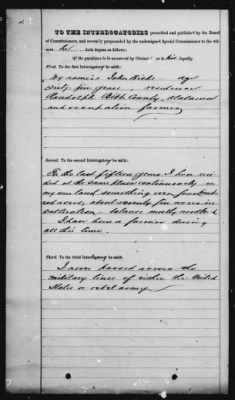 TO THE INTERROGATORIES prescribed and published by the Board
of Commissioners, and severally propounded by the undersigned Special Commissioner to the wit-
ness he doth depose as follows:
(If the purchase to be answered by Claimant as to his loyalty.
First. To the first Interrogatory he saith:
My name is John Hicks age
Sixty five years, residence
Randolph Bibb County, Alabama
and occupation farmer
Second. To the second Interrogatory he saith:
In the last fifteen years I have resi
ded at the same place continuously on
my own land
acres, about seventy five acres in
cultivation balance mostly woodland
I have been a farmer during
all this time.
Third. To the third Interrogatory he saith:
I never passed across the
military lines of either the United
States or rebel army